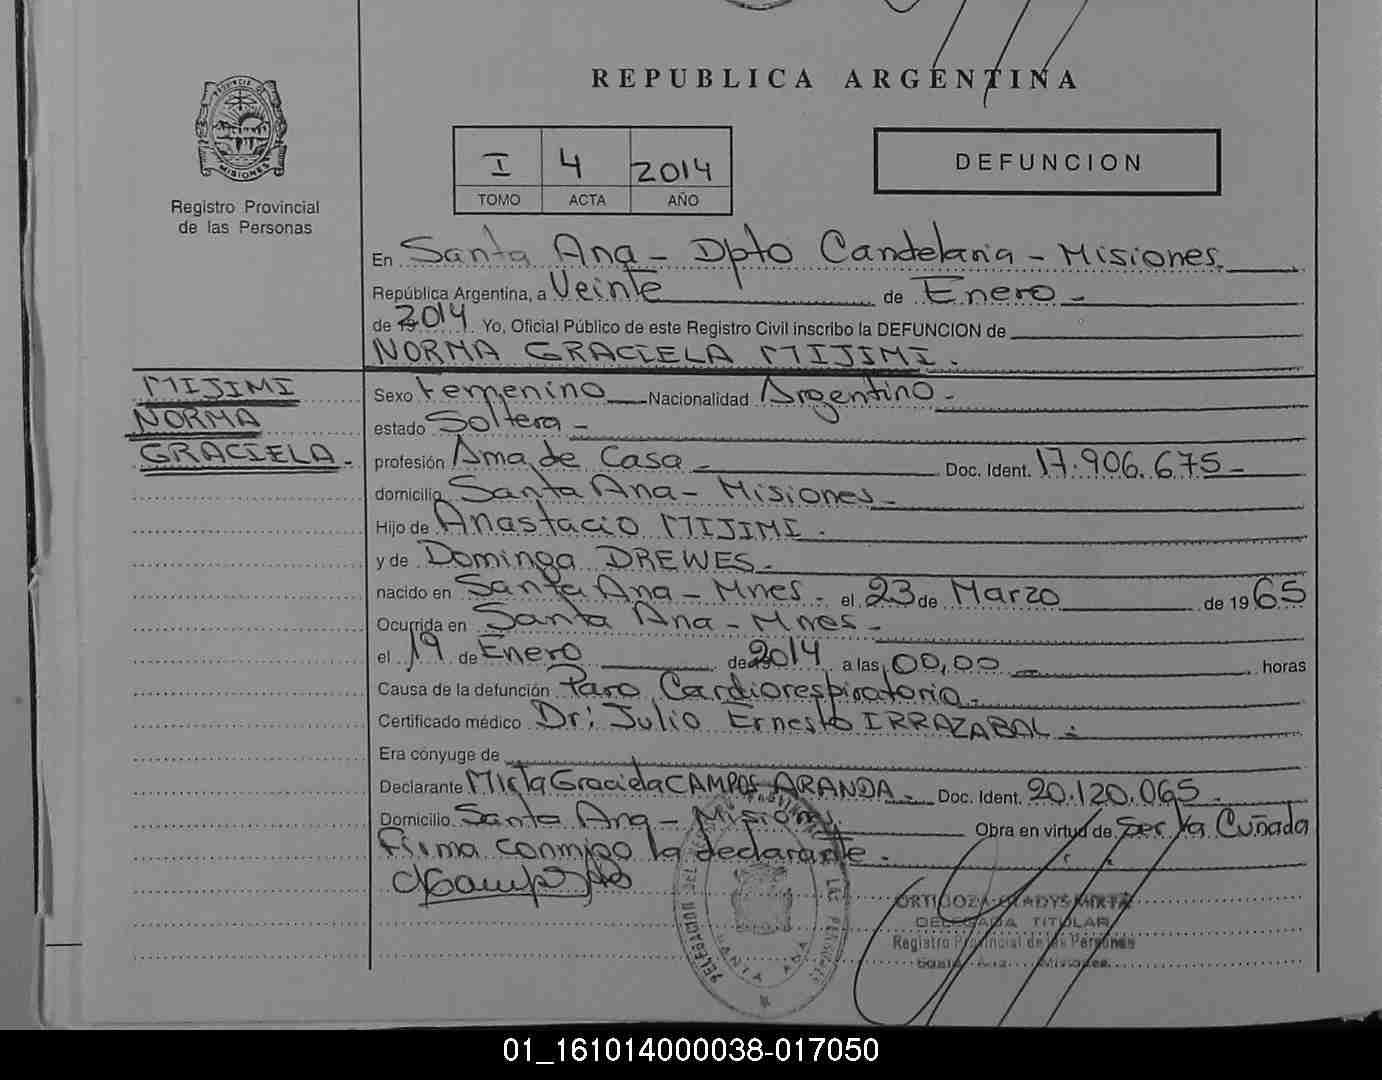 REPUBLICA ARGENTINA
PROVINCIA DE
MISIONES
Registro Provincial
de las Personas
I 4 2014
TOMO ACTA AÑO
DEFUNCION
En Santa Ana - Dpto Candelaria - Misiones.
República Argentina, a Veinte de Enero -
de 2014. Yo, Oficial Público de este Registro Civil inscribo la DEFUNCION de
NORMA GRACIELA MIJIMI.
MIJIMI
NORMA
GRACIELA -
Sexo Femenino Nacionalidad Argentino -
estado Soltera -
profesión Ama de Casa - Doc. Ident. 17.906.675 -
domicilio Santa Ana - Misiones -
Hijo de Anastacio MIJIMI.
y de Dominga DREWES -
nacido en Santa Ana - Mnes. el 23 de Marzo de 1965
Ocurrida en Santa Ana - Mnes -
el 19 de Enero de 2014 a las 00,00 horas
Causa de la defunción Paro Cardiorespiratorio -
Certificado médico Dr: Julio Ernesto IRRAZABAL -
Era cónyuge de
Declarante Mirta Graciela CAMPOS ARANDA - Doc. Ident. 20.120.065 -
Domicilio Santa Ana - Misiones. Obra en virtud de Ser la Cuñada
Firma conmigo la declarante.
DELEGACION DEL REGISTRO PROVINCIAL DE LAS PERSONAS
SANTA ANA
ORTIGOZA GLADYS MIRTA
DELEGADA TITULAR
Registro Provincial de las Personas
Santa Ana Misiones
01_161014000038-017050